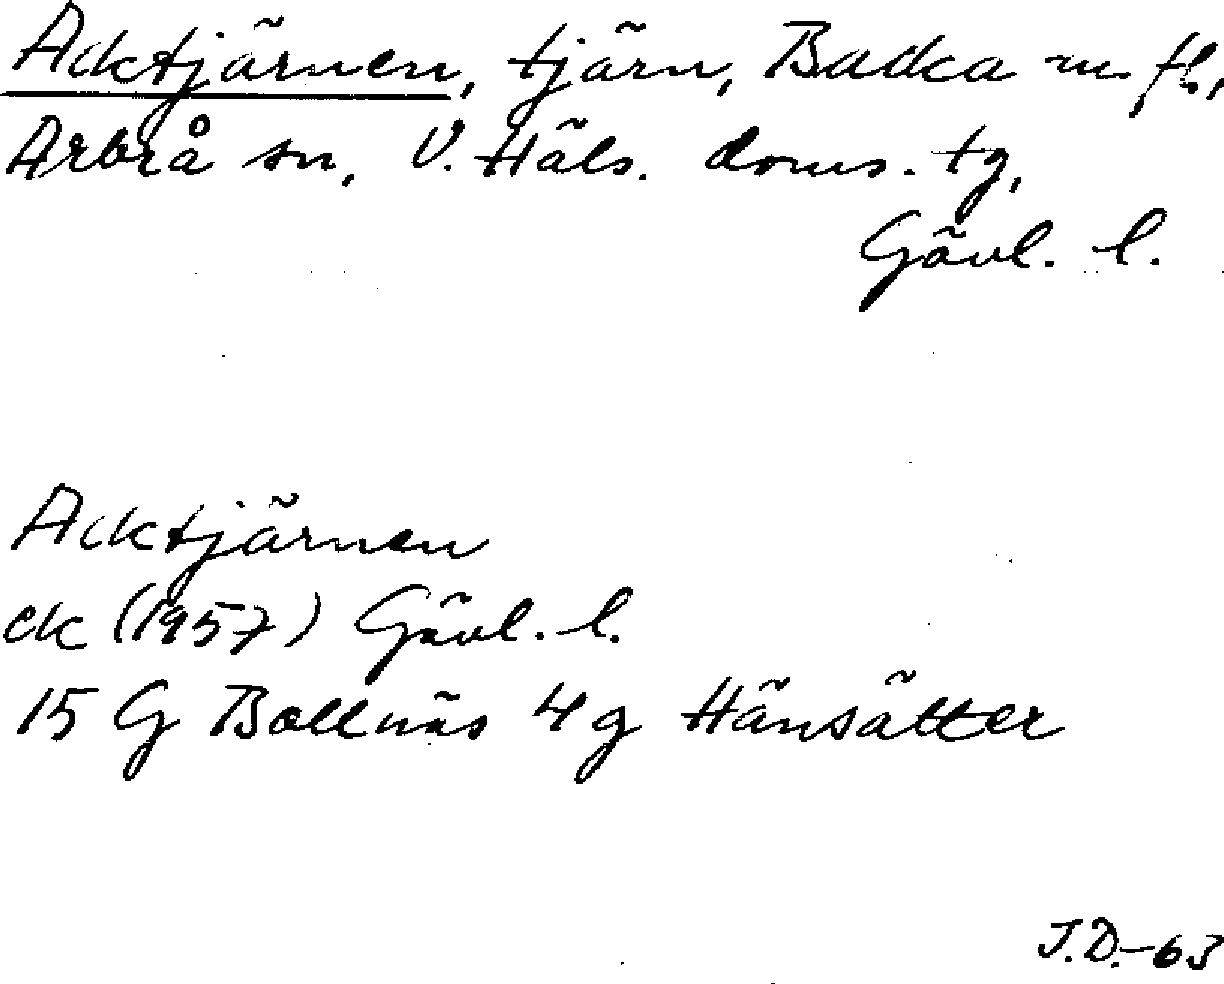 Acktjärnen, tjärn, Backa m fl.,
Arbrå sn, V. Häls. doms. tg,
Gävl. l.
Acktjärnen
ek (1957) Gävl. l.
15 G Bollnäs 4g Hänsätter
J.D.-63